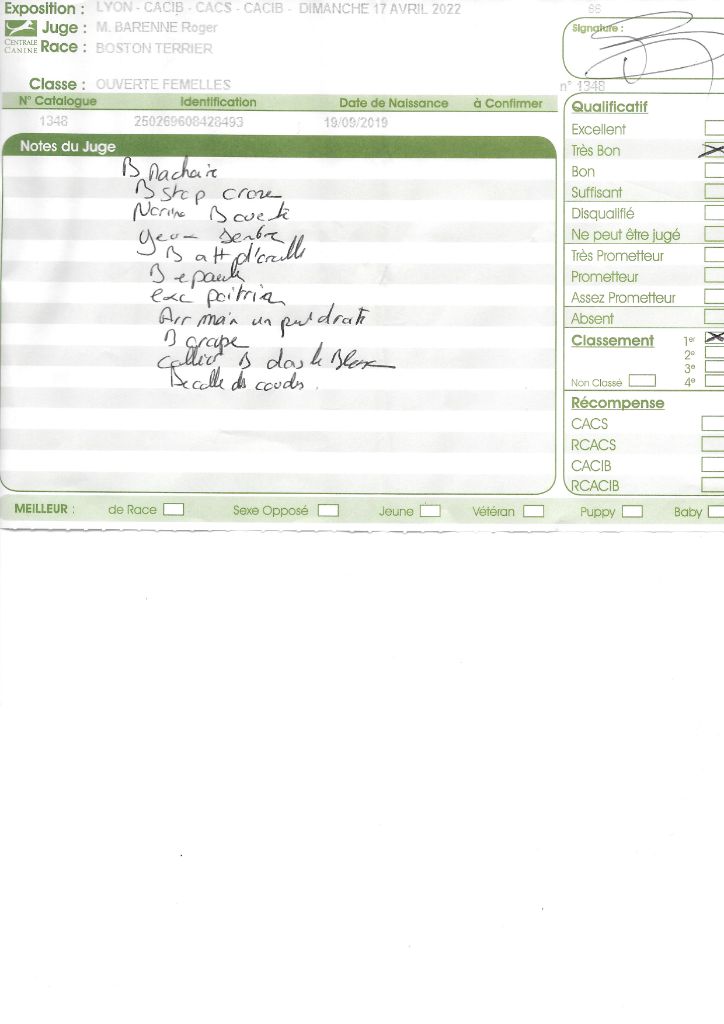 Exposition : LYON - CACIB - CACS - CACIB - DIMANCHE 17 AVRIL 2022
Juge : M. BARENNE Roger
CENTRALE CANINE
Race : BOSTON TERRIER
Signature :
Classe : OUVERTE FEMELLES
n° 1348
N° Catalogue Identification Date de Naissance à Confirmer
1348 250269608428493 19/09/2019
Notes du Juge
B Machoire
B stop
Narine B
Yeux
B att d'oreille
B epaule
exc poitrine
Arr main un peu droite
B
B dans le
Decolle des coudes.
Qualificatif
Excellent
Très Bon
Bon
Suffisant
Disqualifié
Ne peut être jugé
Très Prometteur
Prometteur
Assez Prometteur
Absent
Classement 1er
2e
3e
Non Classé 4e
Récompense
CACS
RCACS
CACIB
RCACIB
MEILLEUR : de Race Sexe Opposé Jeune Vétéran Puppy Baby